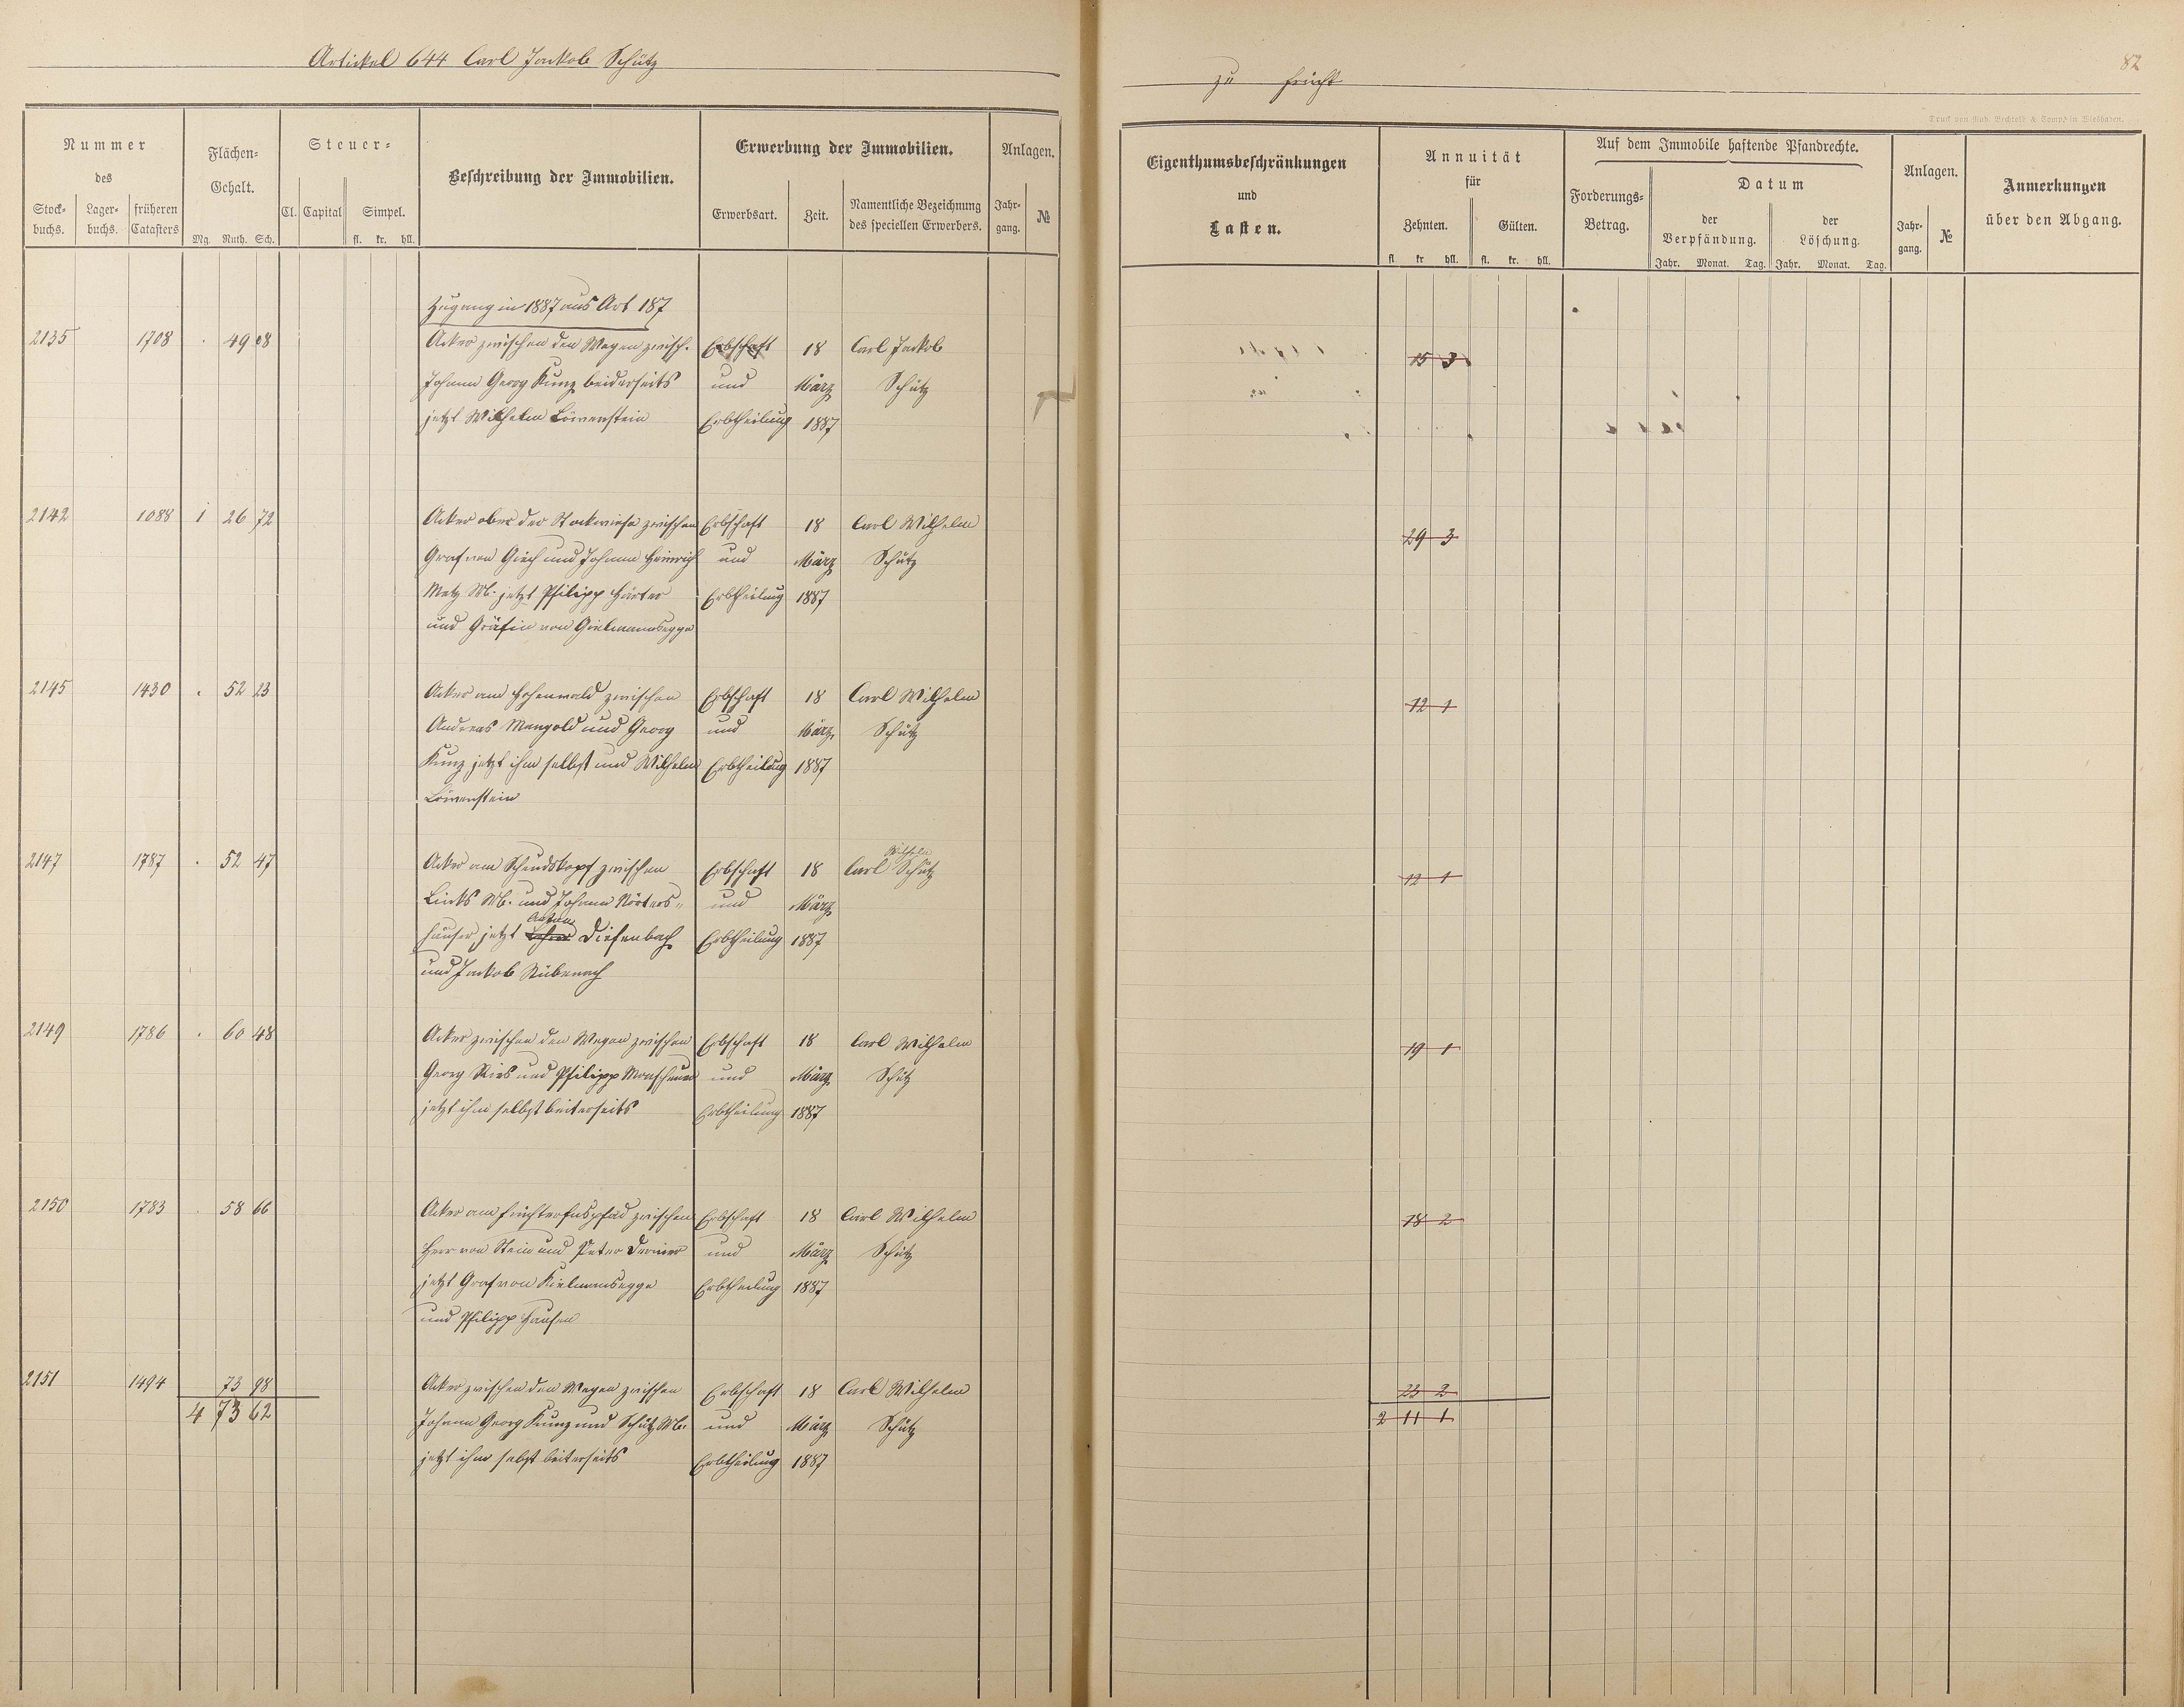 Artikel 644 Carl Jackob Schütz
zu Frücht
82
Druck von Rud. Bechtold & Comp. in Wiesbaden.
Nummer
des
Stock-
buchs.
Lager-
buchs.
früheren
Catasters
Flächen-
Gehalt.
Mg. Ruth. Sch.
Steuer-
Cl. Capital Simpel.
fl. kr. hll.
Beschreibung der Immobilien.
Erwerbung der Immobilien.
Erwerbsart.
Zeit.
Namentliche Bezeichnung
des speciellen Erwerbers.
Anlagen.
Jahr-
gang.
№
Eigenthumsbeschränkungen
und
Lasten.
Annuität
für
Zehnten. Gülten.
fl kr hll. fl. kr. hll.
Auf dem Immobile haftende Pfandrechte.
Forderungs-
Betrag.
Datum
der
Verpfändung.
der
Löschung.
Jahr. Monat. Tag. Jahr. Monat. Tag.
Anlagen.
Jahr-
gang.
№
Anmerkungen
über den Abgang.
Zugang in 1887 aus Art 187
2135 1708 . 49 08 Acker zwischen den Wegen zwisch. Erbschaft 18 Carl Jackob 15 3
Johann Georg Kunz beiderseits und März Schütz
jetzt Wilhelm Löwenstein Erbtheilung 1887
2142 1088 1 26 72 Acker ober der Stockwiese zwischen Erbschaft 18 Carl Wilhelm 29 3
Graf von Giech und Johann Heinrich und März Schütz
Metz Wb. jetzt Philipp Härter Erbtheilung 1887
und Gräfin von Gielmannsegge
2145 1430 . 52 23 Acker am Hohenwald zwischen Erbschaft 18 Carl Wilhelm 12 1
Andreas Mangold und Georg und März Schütz
Kunz jetzt ihm selbst und Wilhelm Erbtheilung 1887
Löwenstein
2147 1787 . 52 47 Acker am zwischen Erbschaft 18 Carl Wilhelm Schütz 12 1
Links Wb. und Johann Nörters- und März
häuser, jetzt Anton Diefenbach Erbtheilung 1887
und Jackob Rübenach
2149 1786 . 60 48 Acker zwischen den Wegen zwischen Erbschaft 18 Carl Wilhelm 19 1
Georg Ries und Philipp Monschauer und März Schütz
jetzt ihm selbst beiterseits Erbtheilung 1887
2150 1783 . 58 66 Acker am zwischen Erbschaft 18 Carl Wilhelm 18 2
Herr von Stein und Peter und März Schütz
jetzt Graf von Kielmansegge Erbtheilung 1887
und Philipp Hansen
2151 1494 73 98 Acker zwischen den Wegen zwischen Erbschaft 18 Carl Wilhelm 22 2
4 73 62 Johann Georg Kunz und Schütz Wb. und März Schütz 2 11 1
jetzt ihm selbst beiterseits Erbtheilung 1887